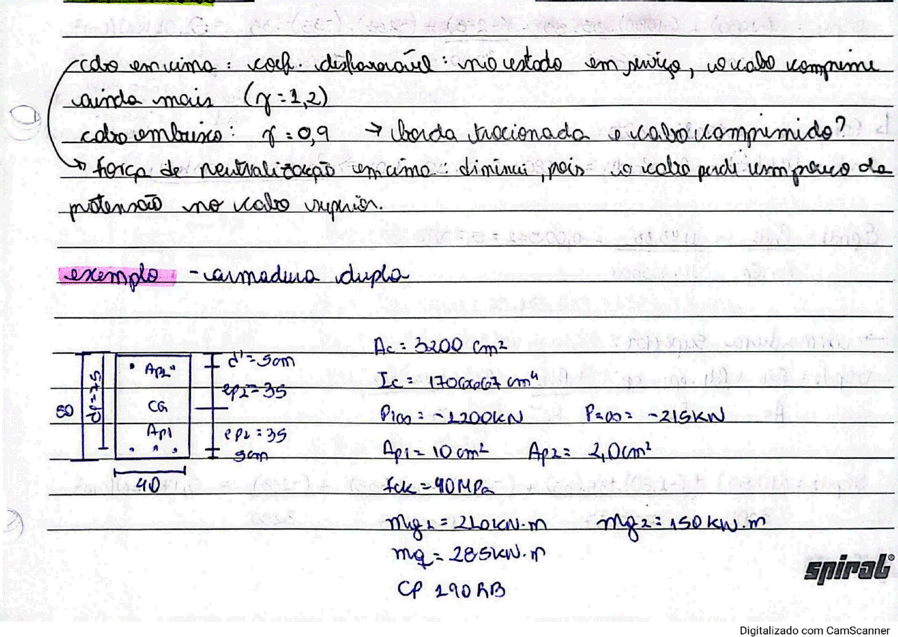 cabo em cima: coef. desfavorável: no estado em serviço, o cabo comprime
ainda mais (γ=1,2)
cabo embaixo: γ=0,9 → borda tracionada e cabo comprimido?
→ força de neutralização em cima: diminui, pois o cabo perde um pouco da
protensão no cabo superior.
exemplo - armadura dupla
Ac = 3200 cm²
Ic = 1706667 cm⁴
P1∞ = -1200KN P2∞ = -215KN
Ap1 = 10cm² Ap2 = 2,0cm²
fck = 40MPa
Mg1 = 210KN.m Mg2 = 150KN.m
Mq = 285KN.m
CP 190RB
80
dp=75
Ap2
CG
Ap1
40
d'=5cm
ep2=35
ep2=35
5cm
spiral
Digitalizado com CamScanner